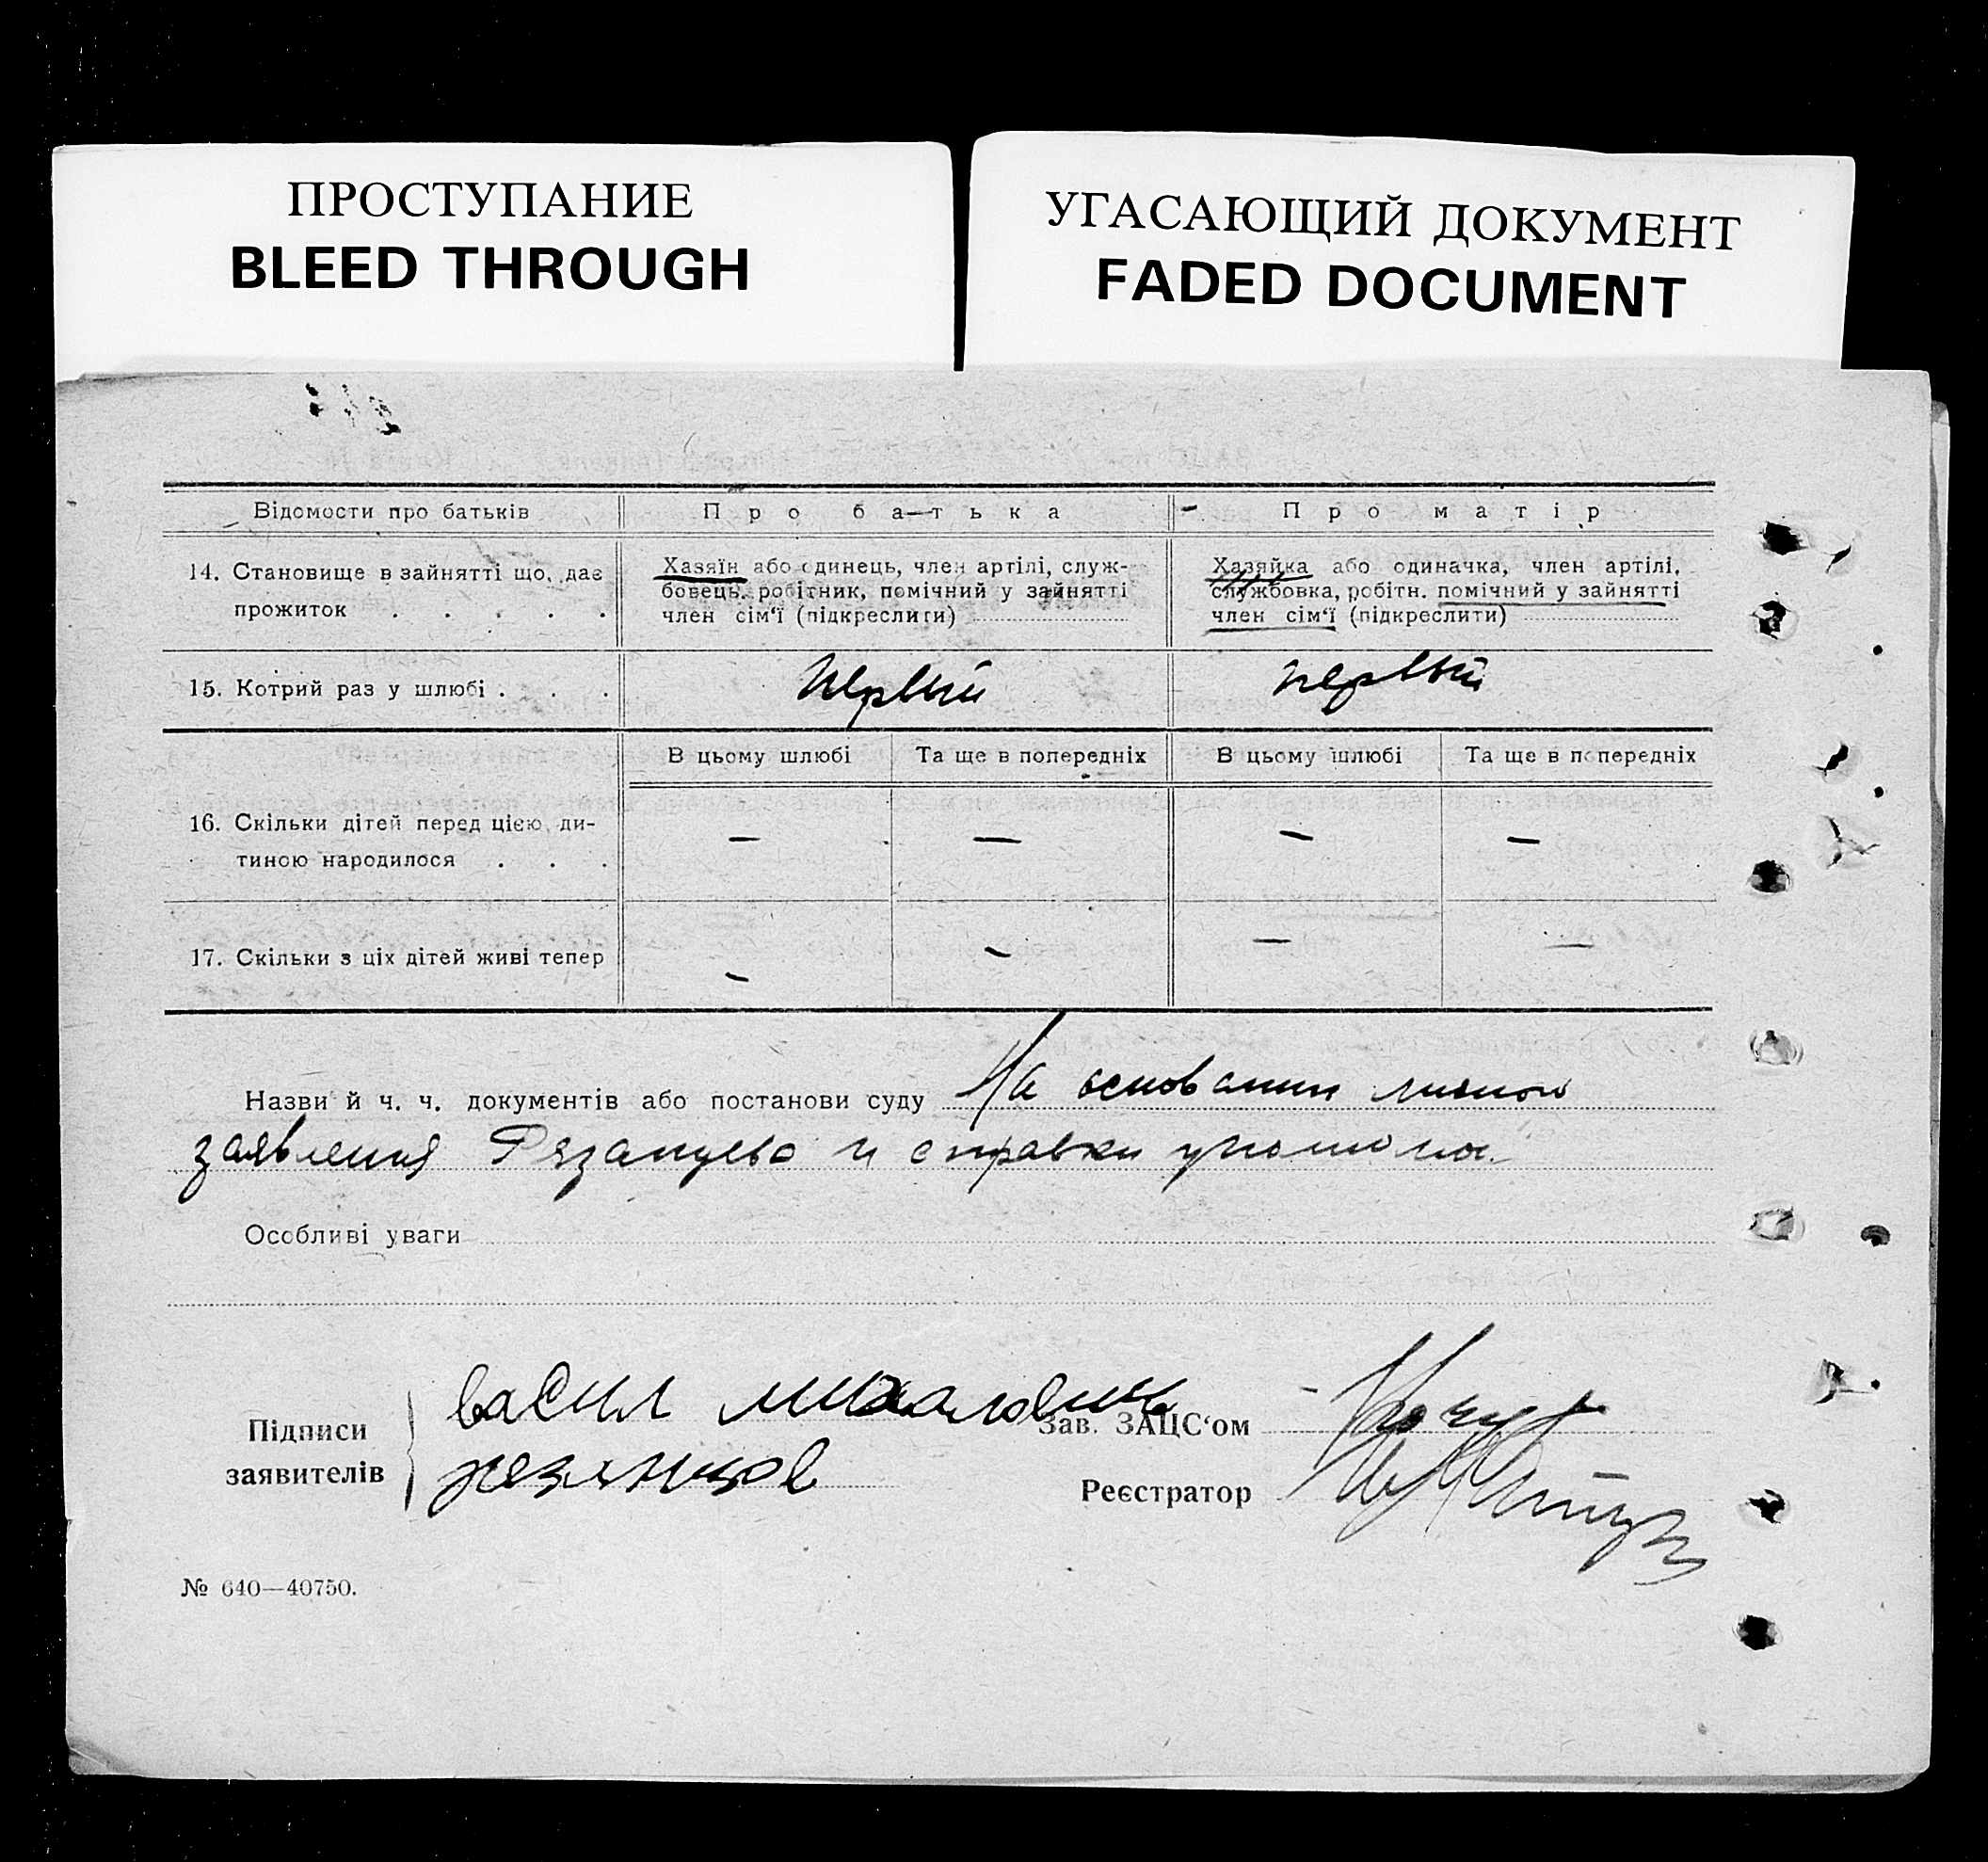 ПРОСТУПАНИЕ
BLEED THROUGH
УГАСАЮЩИЙ ДОКУМЕНТ
FADED DOCUMENT
Відомости про батьків Про батька Про матір
14. Становище в зайнятті що, дає прожиток . . . . .
Хазяїн або одинець, член артілі, служ-
бовець, робітник, помічний у зайнятті
член сім'ї (підкреслити)
Хазяйка або одиначка, член артілі,
службовка, робітн. помічний у зайнятті
член сім'ї (підкреслити)
15. Котрий раз у шлюбі . . . первый первый
В цьому шлюбі Та ще в попередніх В цьому шлюбі Та ще в попередніх
16. Скільки дітей перед цією ди-
тиною народилося . . . — — — —
17. Скільки з ціх дітей живі тепер — — — —
Назви й ч. ч. документів або постанови суду На основании личного
заявления Рязанцева и справки
Особливі уваги
Підписи
заявителів
васил михалович
резанцов
Зав. ЗАЦС'ом
Реєстратор
№ 640—40750.